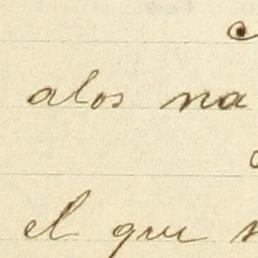 alos na
el que